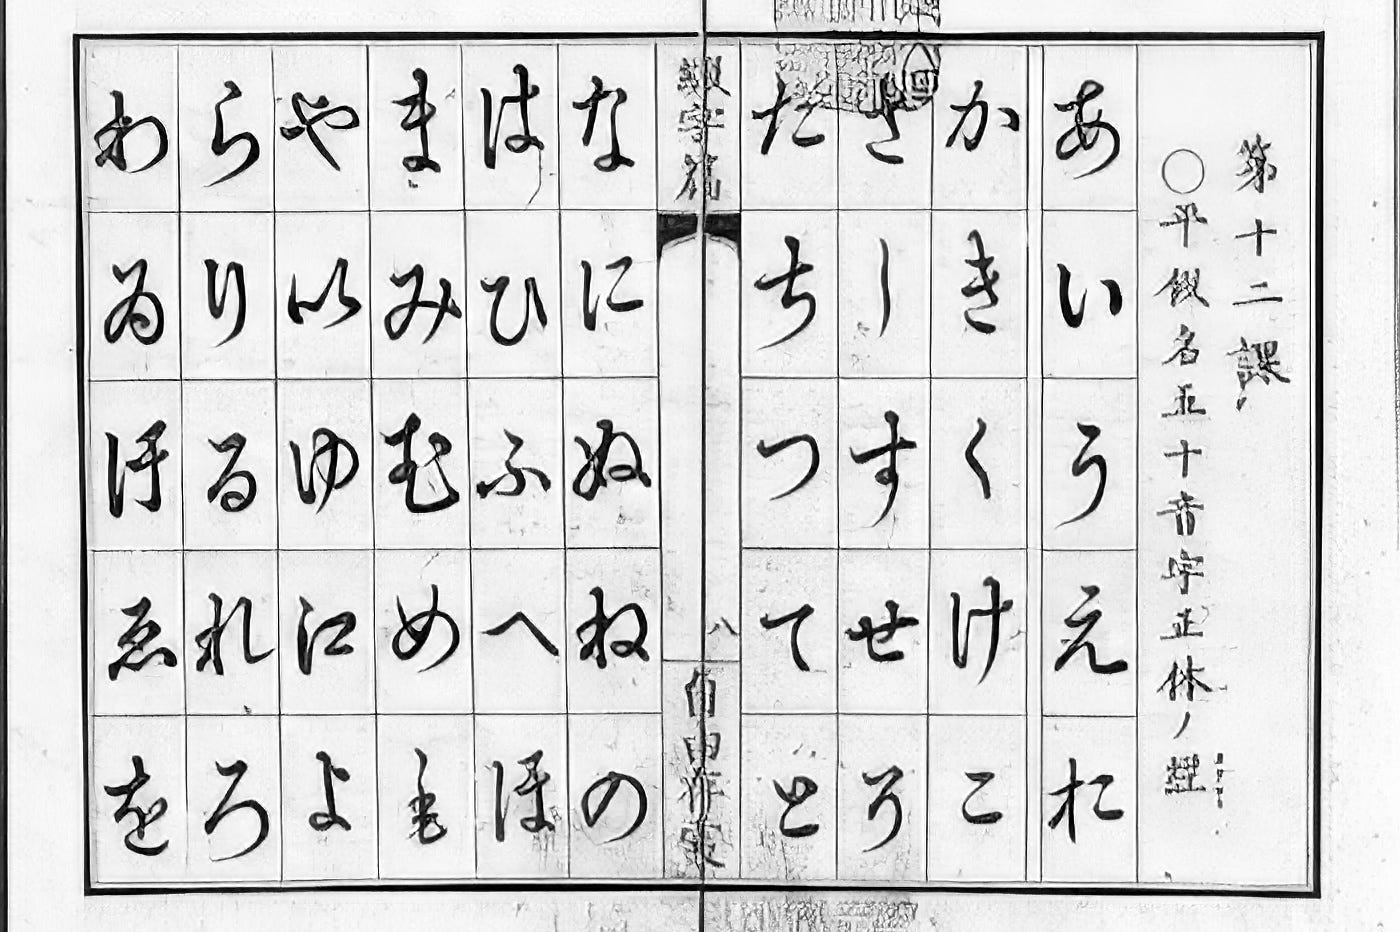 第十二課
○平仮名五十音字正体ノ
あいうえお
かきくけこ
さしすせそ
たちつてと
綴字篇
八
自由作
なにぬねの
はひふへほ
まみむめも
や以ゆ江よ
らりるれろ
わゐ汙ゑを